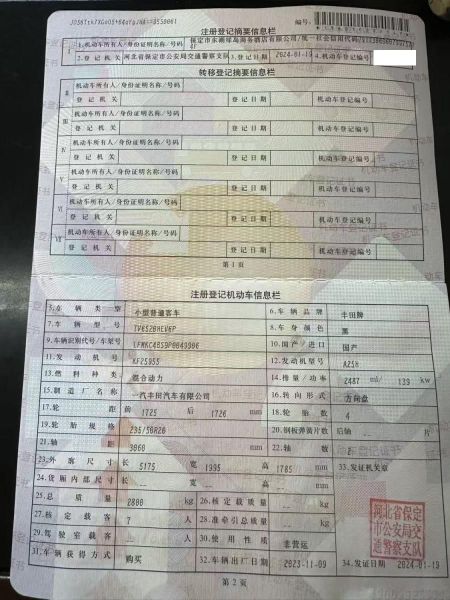 注册登记摘要信息栏
编号:
1.机动车所有人/身份证明名称/号码
2.登记机关 河北省保定市公安局交通警察支队 3.登记日期 2024-01-19 4.机动车登记编号
转移登记摘要信息栏
Ⅱ 机动车所有人/身份证明名称/号码
登记机关 登记日期 机动车登记编号
Ⅲ 机动车所有人/身份证明名称/号码
登记机关 登记日期 机动车登记编号
Ⅳ 机动车所有人/身份证明名称/号码
登记机关 登记日期 机动车登记编号
Ⅴ 机动车所有人/身份证明名称/号码
登记机关 登记日期 机动车登记编号
Ⅵ 机动车所有人/身份证明名称/号码
登记机关 登记日期 机动车登记编号
Ⅶ 机动车所有人/身份证明名称/号码
登记机关 登记日期 机动车登记编号
第1页
注册登记机动车信息栏
5.车辆类型 小型普通客车 6.车辆品牌 丰田牌
7.车辆型号 TV6528HEV6P 8.车身颜色 黑
9.车辆识别代号/车架号 10.国产/进口 国产
11.发动机号 KF25955 12.发动机型号 A25H
13.燃料种类 混合动力 14.排量/功率 2487 ml/ 139 kw
15.制造厂名称 一汽丰田汽车有限公司 16.转向形式 方向盘
17.轮距 前 1725 后 1726 mm 18.轮胎数 4
19.轮胎规格 235/50R20 20.钢板弹簧片数 后轴 -- 片
21.轴距 3060 mm 22.轴数 2
23.外廓尺寸 长 5175 宽 1995 高 1785 mm 33.发证机关章
24.货厢内部尺寸 长 -- 宽 -- 高 -- mm
25.总质量 2800 kg 26.核定载质量 -- kg
27.核定载客 7 人 28.准牵引总质量 -- kg
29.驾驶室载客 -- 人 30.使用性质 非营运
31.车辆获得方式 购买 32.车辆出厂日期 2023-11-09 34.发证日期 2024-01-19
河北省保定
市公安局交
通警察支队
第2页